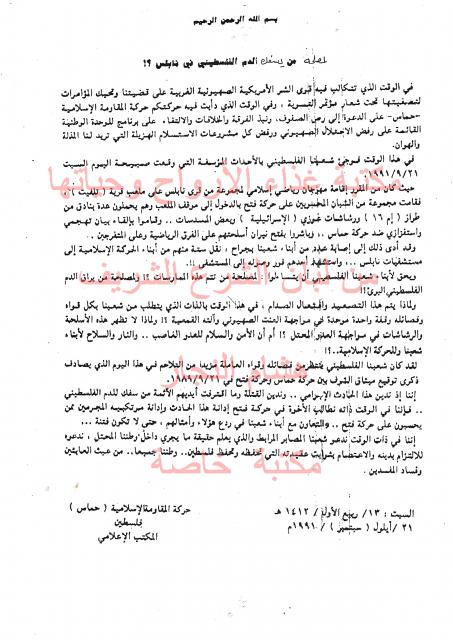 بسم الله الرحمن الرحيم
لمصلحة من يسفك الدم الفلسطيني في نابلس ؟!
في الوقت الذي تتكالب فيه قوى الشر الأمريكية الصهيونية الغربية على قضيتنا وتحيك المؤامرات
لتصفيتها تحت شعار مؤتمر التسوية ، وفي الوقت الذي دأبت فيه حركتكم حركة المقاومة الإسلامية
-حماس- على الدعوة إلى رص الصفوف، ونبذ الفرقة والخلافات والالتقاء على برنامج للوحدة الوطنية
القائمة على رفض الاحتلال الصهيوني ورفض كل مشروعات الاستسلام الهزيلة التي تريد لنا المذلة
والهوان.
في هذا الوقت فوجئ شعبنا الفلسطيني بالأحداث المؤسفة التي وقعت صبيحة اليوم السبت
١٩٩١/٩/٢١.
حيث كان من المقرر إقامة مهرجان رياضي إسلامي لمجموعة من قرى نابلس على ملعب قرية ( تلفيت ) ،
فقامت مجموعة من الشبان المحسوبين على حركة فتح بالدخول إلى موقف الملعب وهم يحملون عدة بنادق من
طراز (إم ١٦) ورشاشات عوزي (الإسرائيلية) وبعض المسدسات .. وقاموا بإلقاء بيان تهجمي
واستفزازي ضد حركة حماس ، وباشروا بفتح نيران أسلحتهم على الفرق الرياضية وعلى المتفرجين .
وقد أدى ذلك إلى إصابة عدد من أبناء شعبنا بجراح ، نقل ستة منهم من أبناء الحركة الإسلامية إلى
مستشفيات نابلس ... واستشهد أحدهم فور وصوله إلى المستشفى !!
ويحق لأبناء شعبنا الفلسطيني أن يتساءلوا : لمصلحة من تتم هذه الممارسات ؟! ولمصلحة من يراق الدم
الفلسطيني البرئ؟!
ولماذا يتم هذا التصعيد وإشعال الصدام ، في هذا الوقت بالذات الذي يتطلب من شعبنا بكل قواه
وفصائله وقفة واحدة موحدة في مواجهة العنت الصهيوني وآلته القمعية ؟! ولماذا لا تظهر هذه الأسلحة
والرشاشات في مواجهة العدو المحتل ؟! أم أن الأمن والسلام للعدو الغاصب .. والنار والسلاح لأبناء
شعبنا وللحركة الإسلامية..؟!
لقد كان شعبنا الفلسطيني ينتظر من فصائله وقواه العاملة مزيدا من التلاحم في هذا اليوم الذي يصادف
ذكرى توقيع ميثاق الشرف بين حركة حماس وحركة فتح في
إننا إذ ندين هذا الحادث الإجرامي .. وندين القتلة وما اقترفت أيديهم الآثمة من سفك للدم الفلسطيني
.. فإننا في الوقت ذاته نطالب الأخوة في حركة فتح إدانة هذا الحادث وإدانة مرتكبيه المجرمين ممن
يحسبون على حركة فتح .. والتعاون مع أبناء شعبنا في ردع هؤلاء وأمثالهم ، حتى لا تكون فتنة ...
إننا في ذات الوقت ندعو شعبنا الصابر المرابط والذي يعلم حقيقة ما يجري داخل وطننا المحتل ، ندعوه
للالتزام بدينه والاعتصام بثوابت عقيدته التي تحفظه وتحفظ فلسطين .. وطننا جميعا.. من عبث العابثين
وفساد المفسدين .
السبت : ١٣/ ربيع الأول/ ١٤١٢ هـ
٢١/ أيلول ( سبتمبر ) / ١٩٩١م
حركة المقاومة الإسلامية ( حماس )
فلسطين
المكتب الإعلامي
مكتبة غذاء الأرواح وحياتها
مكتبة خاصة